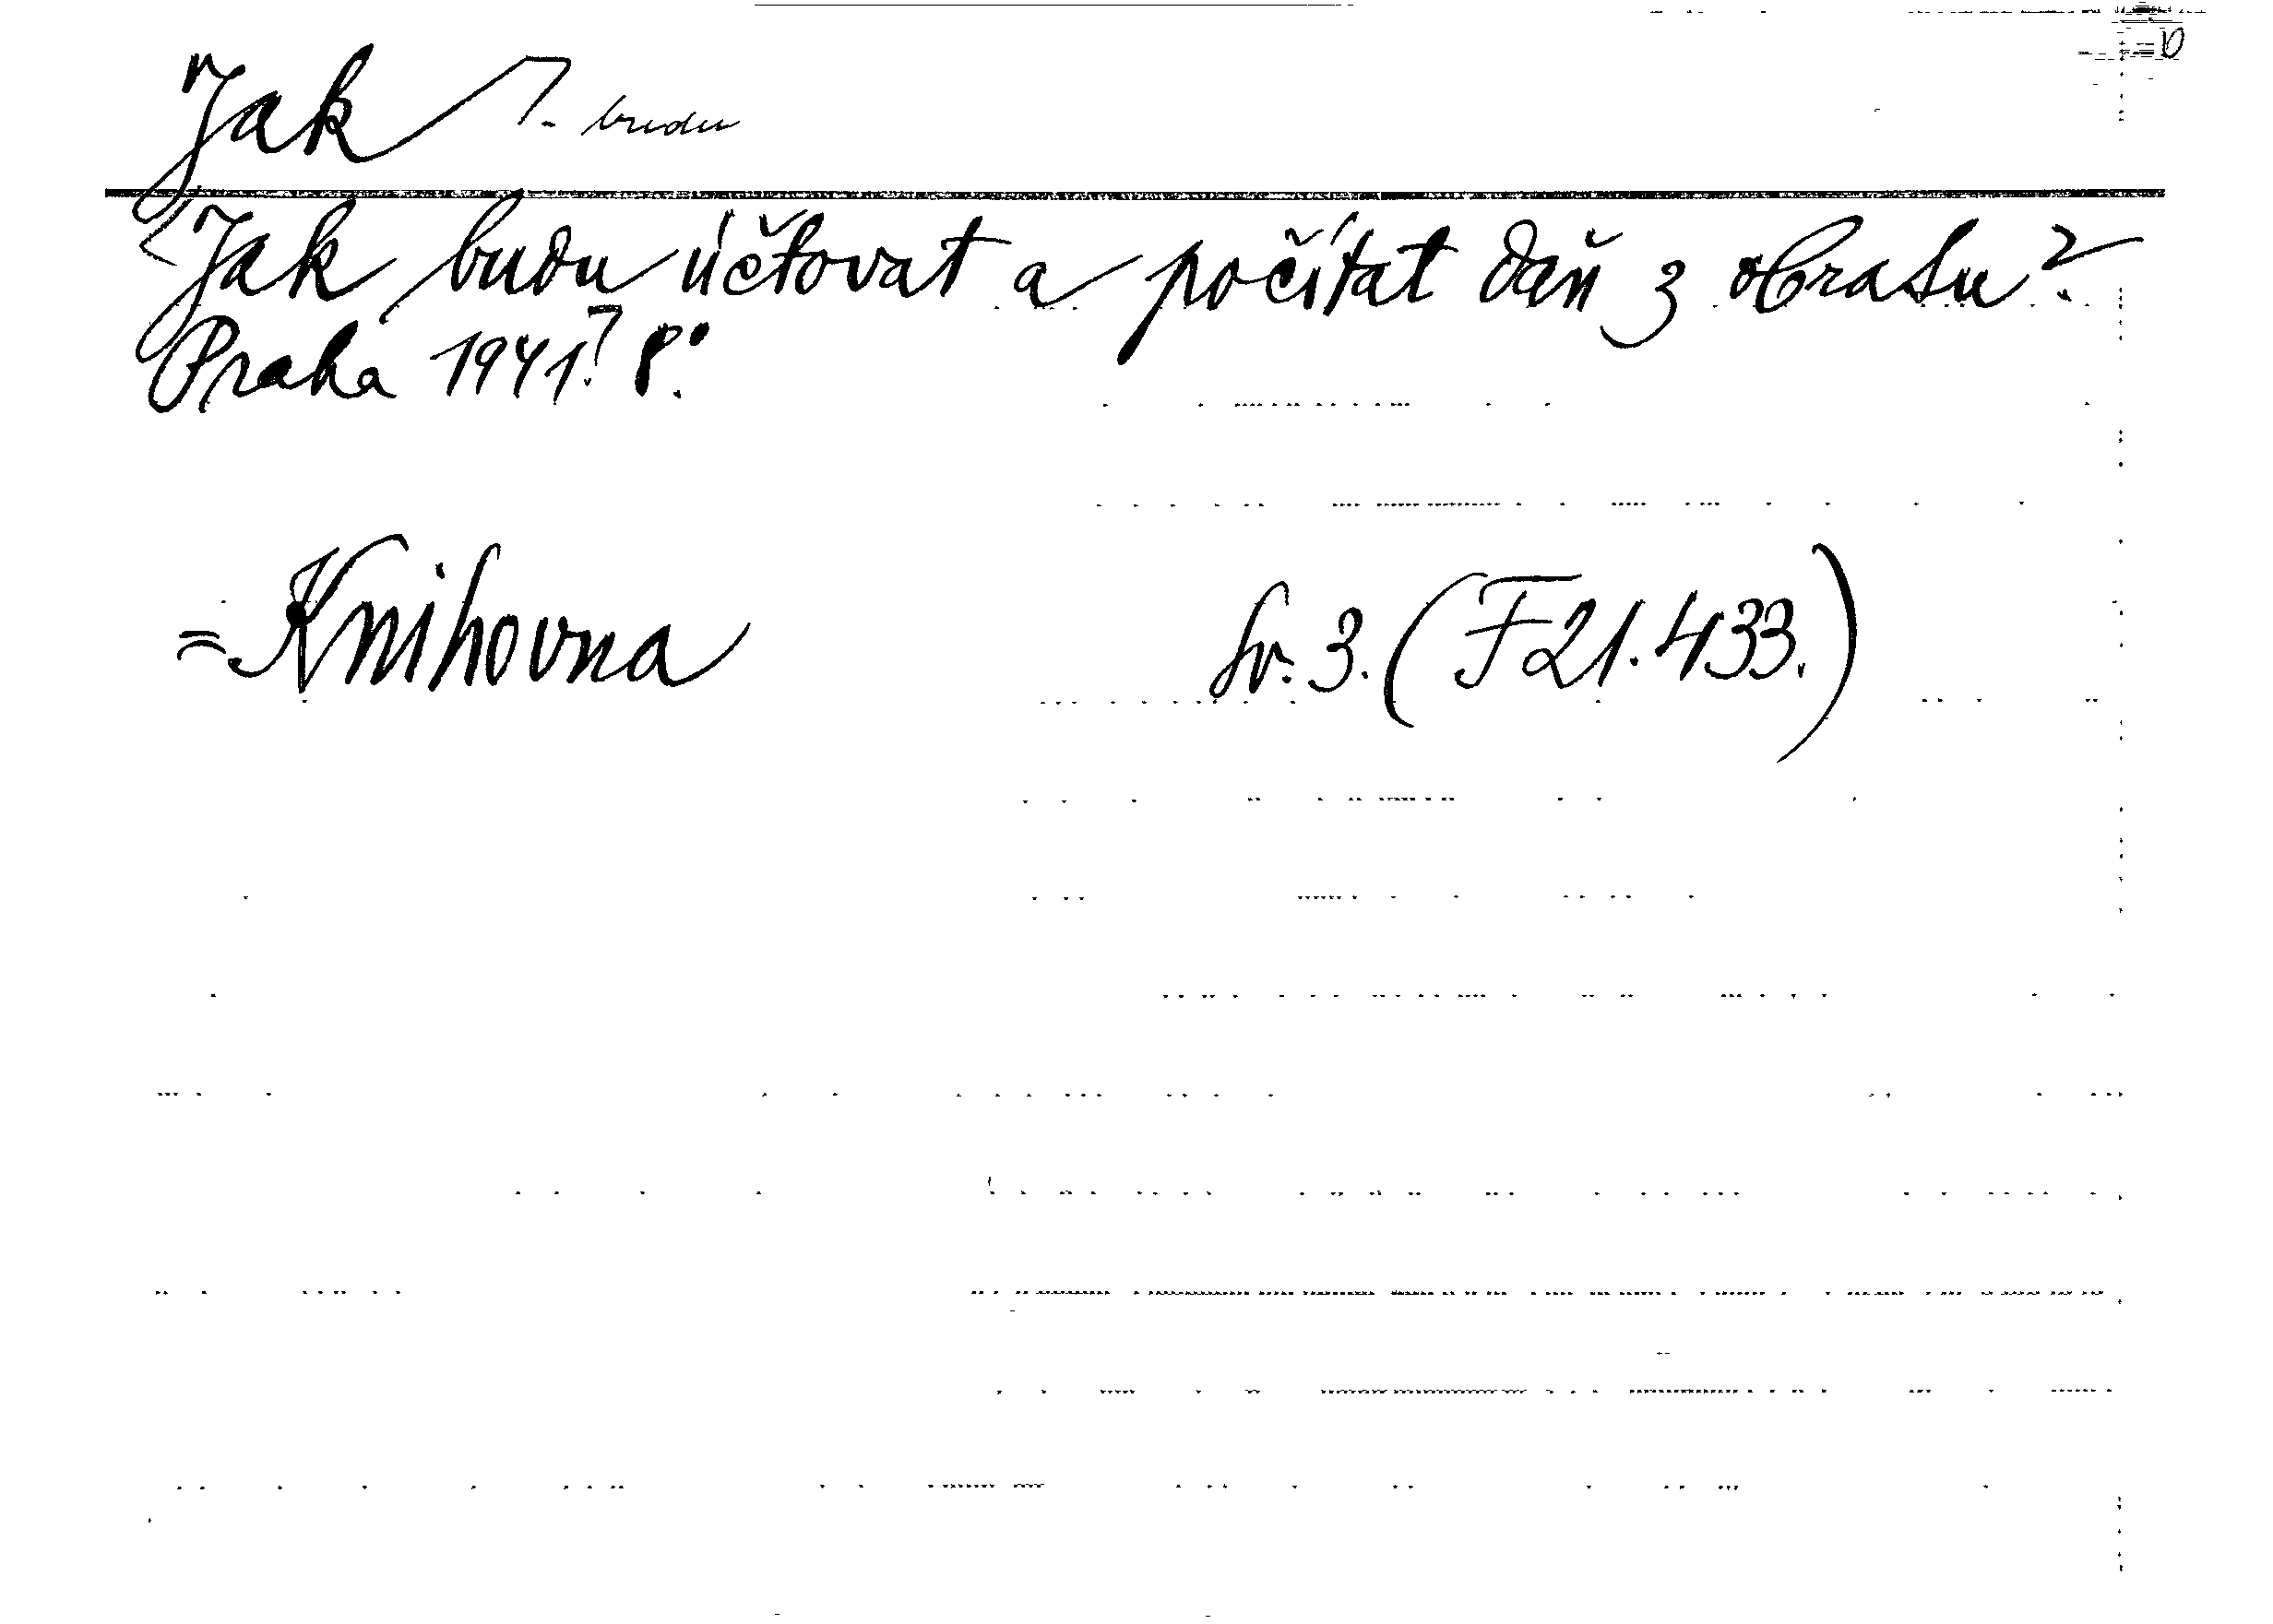 Jak ?. budu
Jak budu účtovat a počítat daň z obratu?
Praha 1941? 8°.
= Knihovna sv. 3. (F 21.433.)